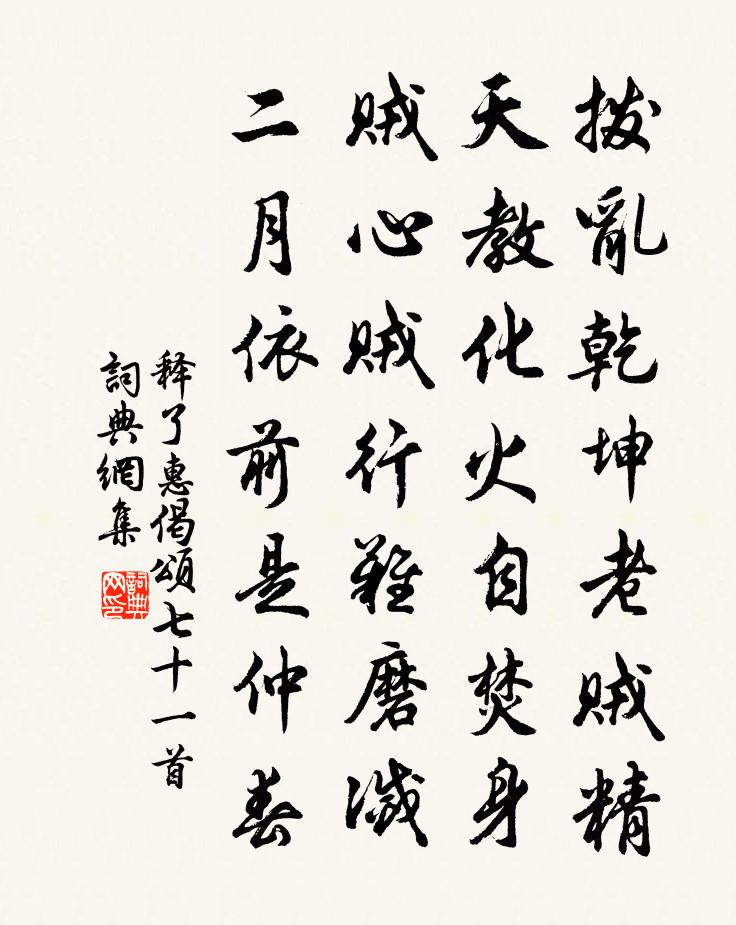 拨亂乾坤老贼精
天教化火自焚身
贼心贼行難磨滅
二月依前是仲春
释了惠偈頌七十一首
詞典網集
詞典網印